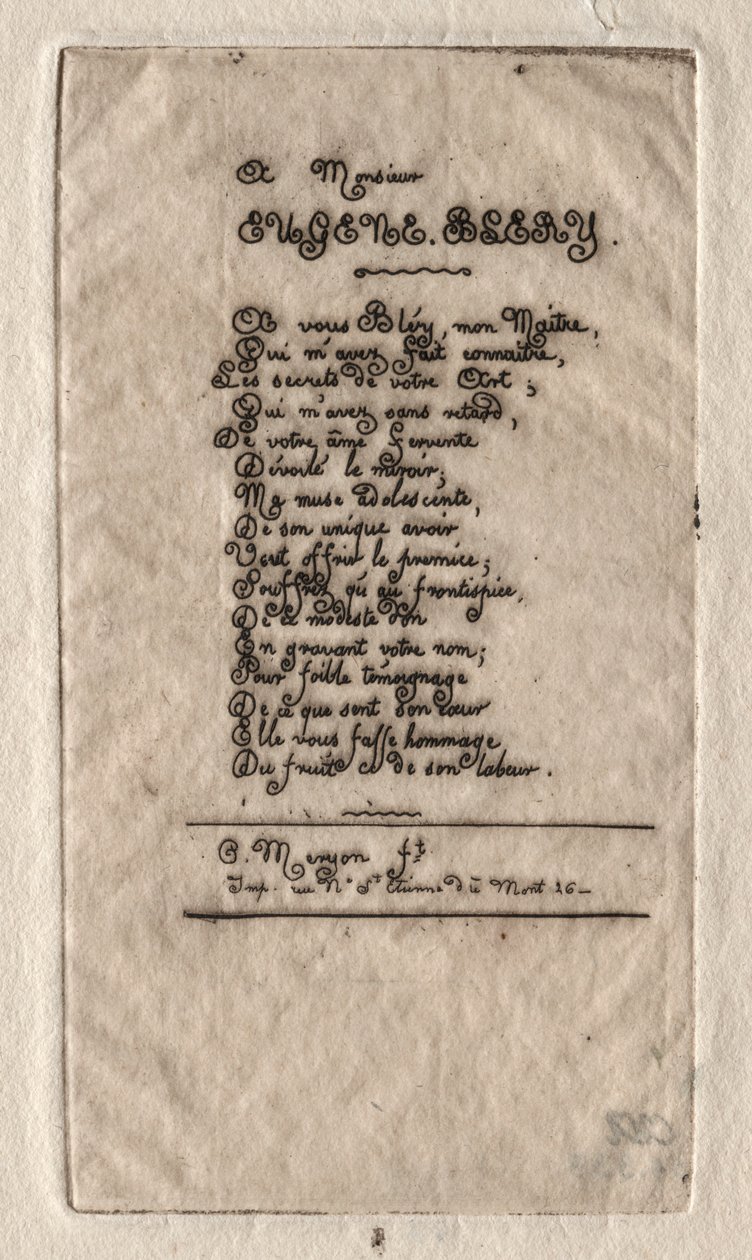 A Monsieur
EUGENE. BLERY.
A vous Bléry, mon Maître,
Qui m'avez fait connaître,
Les secrets de votre Art ;
Qui m'avez sans retard,
De votre âme fervente
Dévoilé le miroir;
Ma muse adolescente,
De son unique avoir
Veut offrir le premice;
Souffrez qu'au frontispice,
De ce modeste don
En gravant votre nom;
Pour foible témoignage
De ce que sent son cœur
Elle vous fasse hommage
Du fruit ce de son labeur.
C. Meryon ft.
Imp. rue Ne St Etienne du Mont 26_